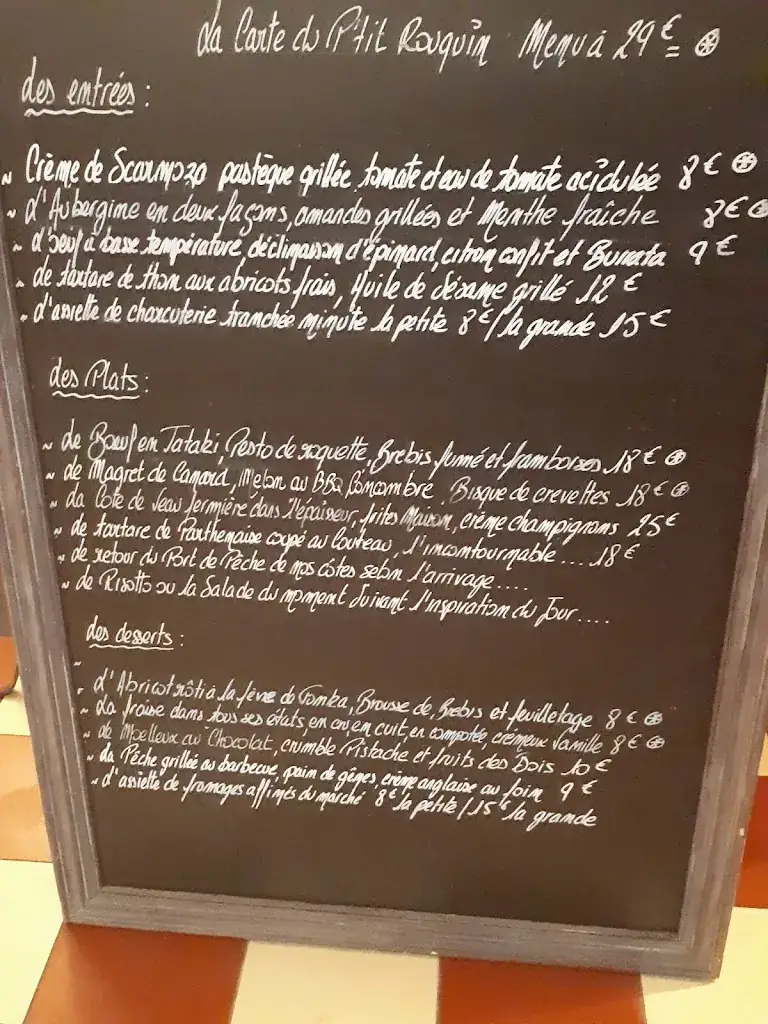 La Carte du P'tit Rouquin Menu à 29 € ⊛
des entrées :
~ Crème de Scarmoza pastèque grillée tomate et eau de tomate acidulée 8 € ⊛
~ L'Aubergine en deux façons, amandes grillées et Menthe fraîche 8 € ⊛
~ L'oeuf à basse température, déclinaison d'épinard, citron confit et Burrata 9 €
~ Le tartare de thon aux abricots frais, Huile de Sésame grillé 12 €
~ L'assiette de charcuterie tranchée minute la petite 8 € / la grande 15 €
des Plats :
~ Le Boeuf en Tataki, Pesto de roquette, Brebis fumé et framboises 18 € ⊛
~ Le Magret de Canard, Melon au BBQ Concombre, Bisque de crevettes 18 € ⊛
~ La Côte de Veau fermière dans l'épaisseur, frites Maison, crème champignons 25 €
~ Le tartare de Parthenaise coupé au Couteau, L'incontournable.... 18 €
~ Le retour du Port de Pêche de nos côtes selon l'arrivage.....
~ Le Risotto ou la Salade du moment Suivant l'inspiration du Jour....
des desserts :
~ L'Abricot rôti à la fève de Tonka, Brousse de Brebis et feuilletage 8 € ⊛
~ La fraise dans tous ses états, en cru, en cuit, en compotée, crémeux vanille 8 € ⊛
~ Le Moelleux au Chocolat, crumble Pistache et fruits des Bois 10 €
~ La Pêche grillée au barbecue, pain de gênes, crème anglaise au foin 9 €
~ L'assiette de fromages affinés du marché 8 € la petite / 15 € la grande